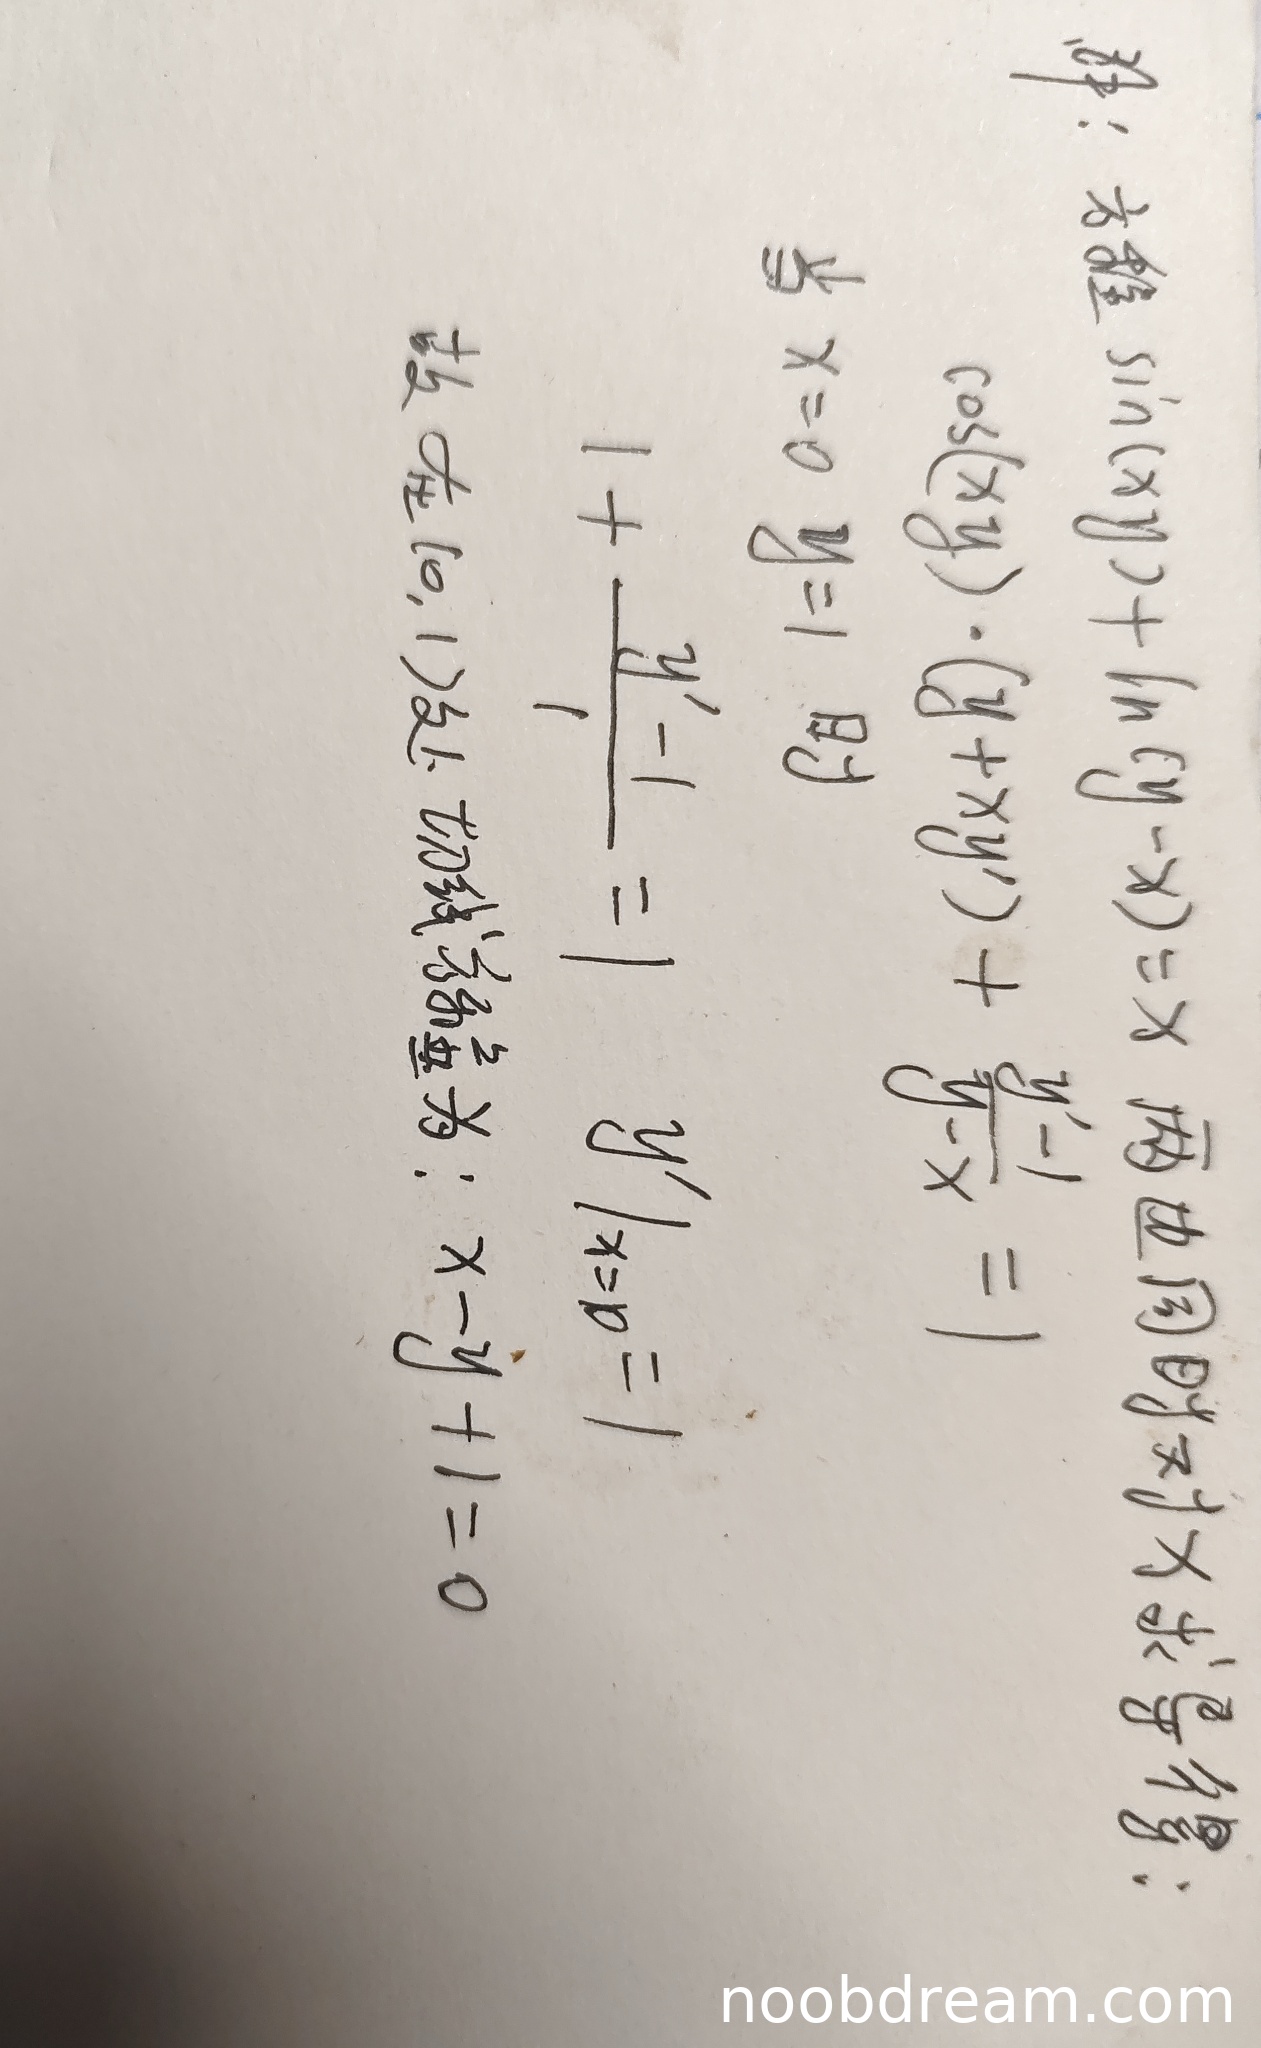 解：方程 sin(xy)+ln(y-x)=x 两边同时对x求导得：
cos(xy)·(y+xy')+\frac{y'-1}{y-x}=1
当 x=0 y=1 时
1+\frac{y'-1}{1}=1 y'|x=0=1
故在(0,1)处切线方程为：x-y+1=0
noobdream.com